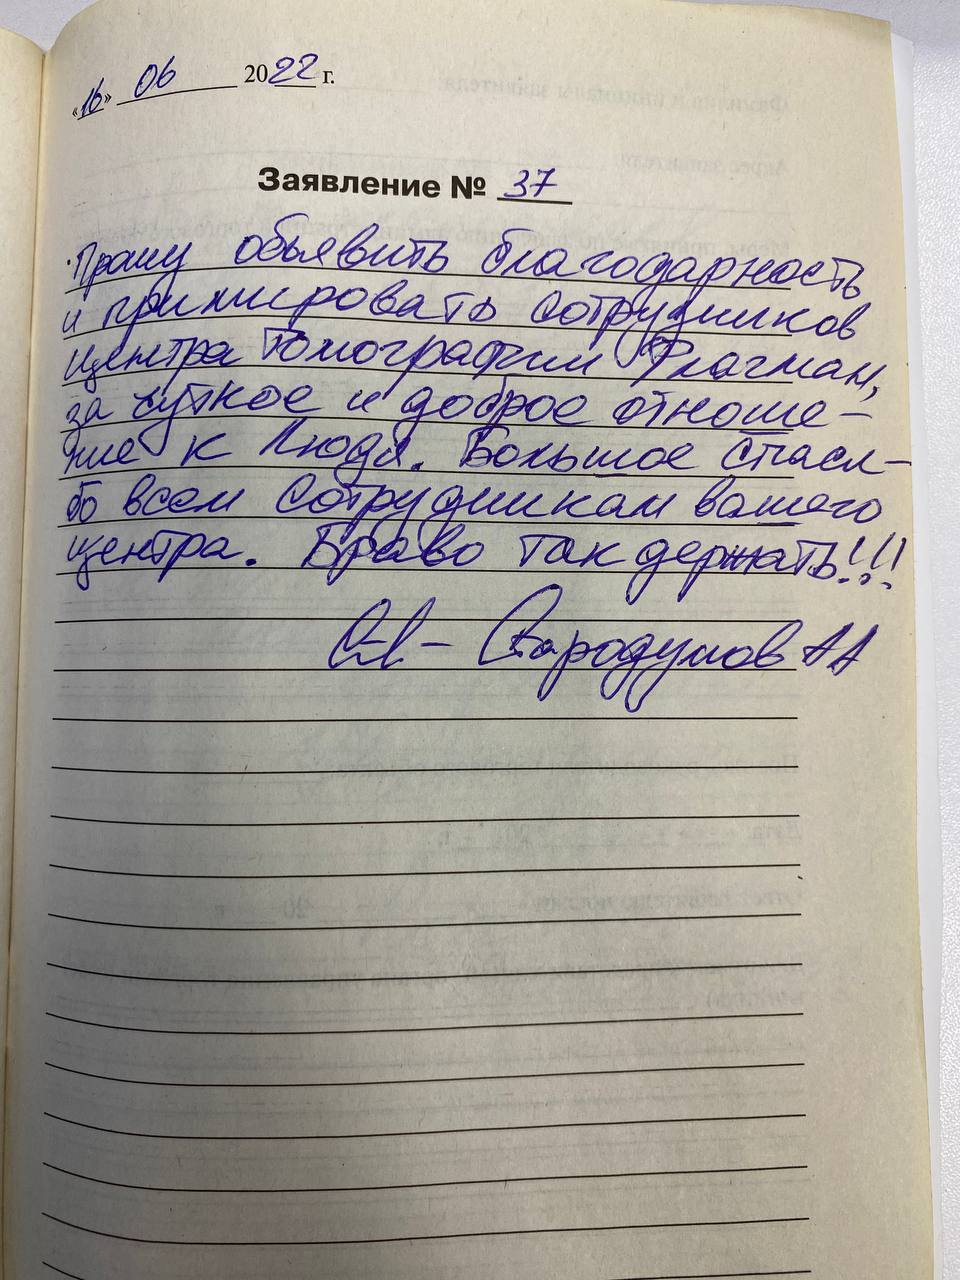 «16» 06 2022 г.
Заявление № 37
Прошу объявить благодарность
и примировать сотрудников
центра Томографии Флагман,
за чуткое и доброе отноше-
ние к Людя. Большое спаси-
бо всем сотрудникам вашего
центра. Браво так держать!!!
Стародумов АА